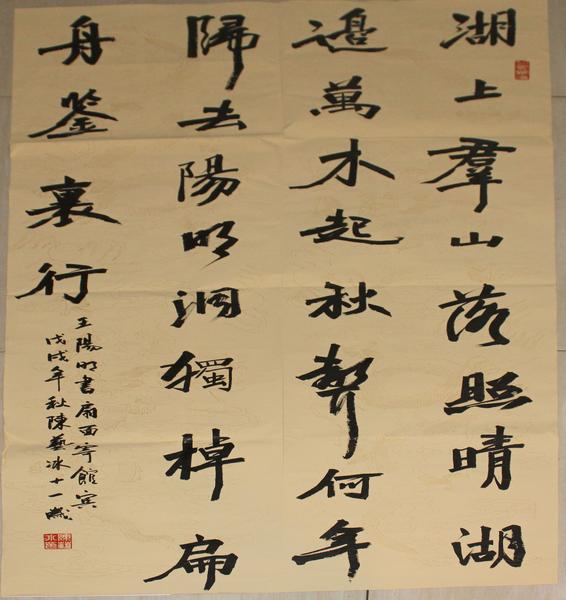 湖上羣山落照晴湖
邊萬木起秋聲何年
歸去陽明洞獨棹扁
舟鑒裏行
王陽明書扇面寄館賓
戊戌年秋陳藝冰十一歲